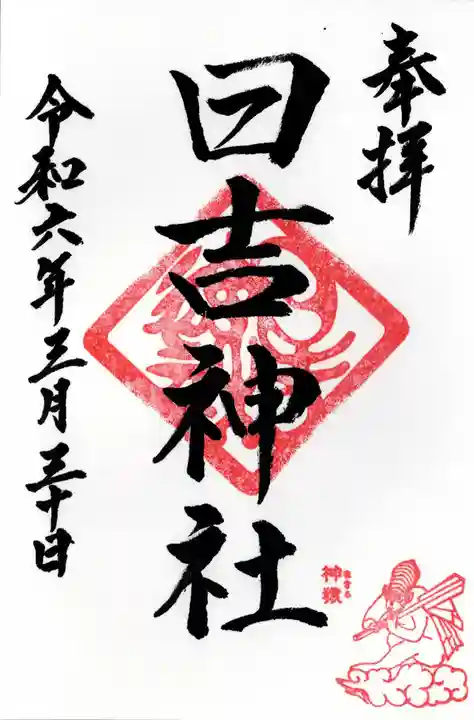 奉拝
日吉神社
令和六年三月三十日
神猿
まさる